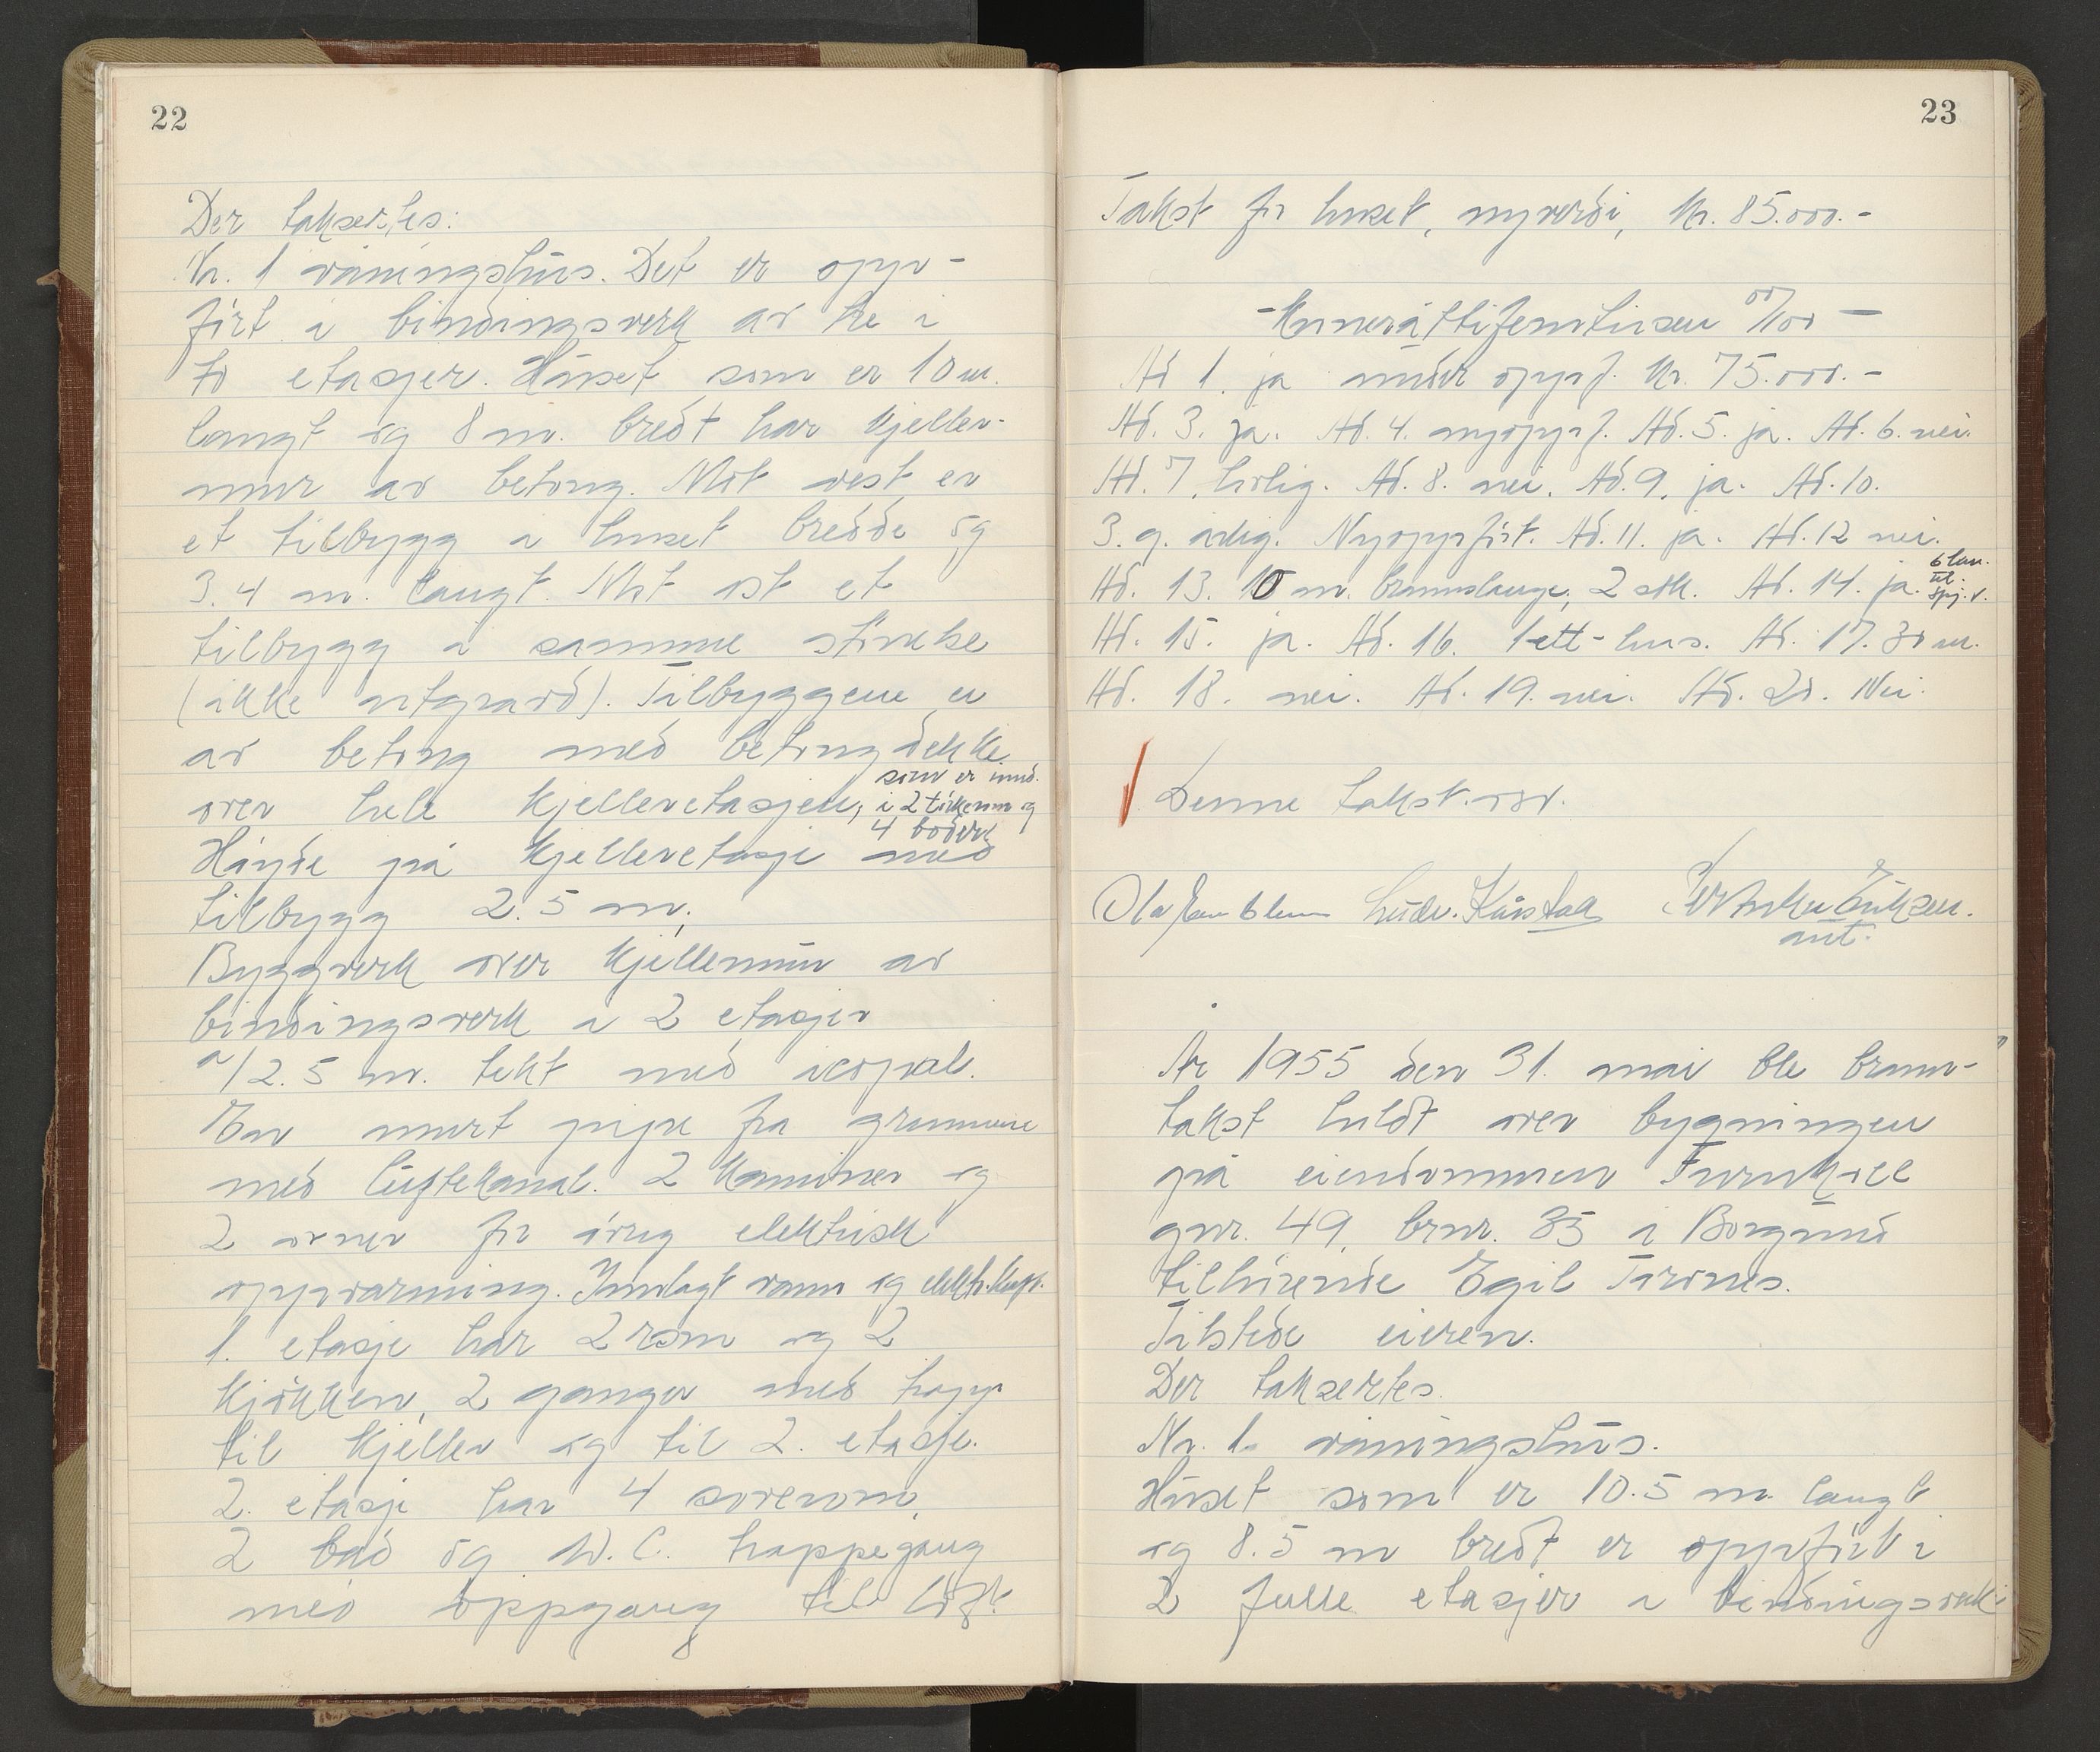 22
Der taksertes:
Nr. 1 våningshus. Det er opp-
ført i bindingsverk av tre i
to etasjer. Huset som er 10 m.
langt og 8 m. bredt har kjeller-
mur av betong. Mot vest er
et tilbygg i huset bredde og
3.4 m. langt. Mot øst et
tilbygg i samme størrelse
(ikke utgravd). Tilbyggene er
av betong med betongdekke
over hele kjelleretasjen, som er innd.
i 2 tørkerom og
4 boder
Høyde på kjelleretasje med
tilbygg 2.5 m.
Byggverk over kjellermur av
bindingsverk i 2 etasjer
a/2.5 m. tekt med icopal.
En murt pipe fra grunnmure
med luftekanal. 2 kaminer og
2 ovner for øvrig elektrisk
oppvarming. Innlagt vann og elektr. kraft.
1. etasje har 2 rom og 2
kjøkken, 2 ganger med trapp
til kjeller og til 2. etasje.
2. etasje har 4 soverom,
2 bad og W.C. trappegang
med oppgang til loft.
23
Takst for huset, nyverdi, kr. 85.000.-
- Kroneråttifemtusen 00/100 -
Ad 1. ja under oppf. kr. 75.000.-
Ad. 3. ja. Ad. 4. nyoppf. Ad. 5. ja. Ad. 6. nei.
Ad. 7. bolig. Ad. 8. nei. Ad. 9. ja. Ad. 10.
3. g. årlig. Nyoppført. Ad. 11. ja. Ad. 12 nei.
Ad. 13. 10 m. brannslange, 2 stk. Ad. 14. ja.
Ad. 15. ja. Ad. 16. 1 ett-hus. Ad. 17. 30 m.
Ad. 18. nei. Ad. 19. nei. Ad. 20. Nei.
Denne takst. osv.
År 1955 den 31. mai ble brann-
takst holdt over bygningen
på eiendommen Furukoll
gnr. 49, brnr. 35 i Borgund
tilhørende Egil
Tilstede eieren.
Der taksertes.
Nr. 1. våningshus.
Huset som er 10.5 m. langt
og 8.5 m bredt er oppført i
2 fulle etasjer i bindingsverk